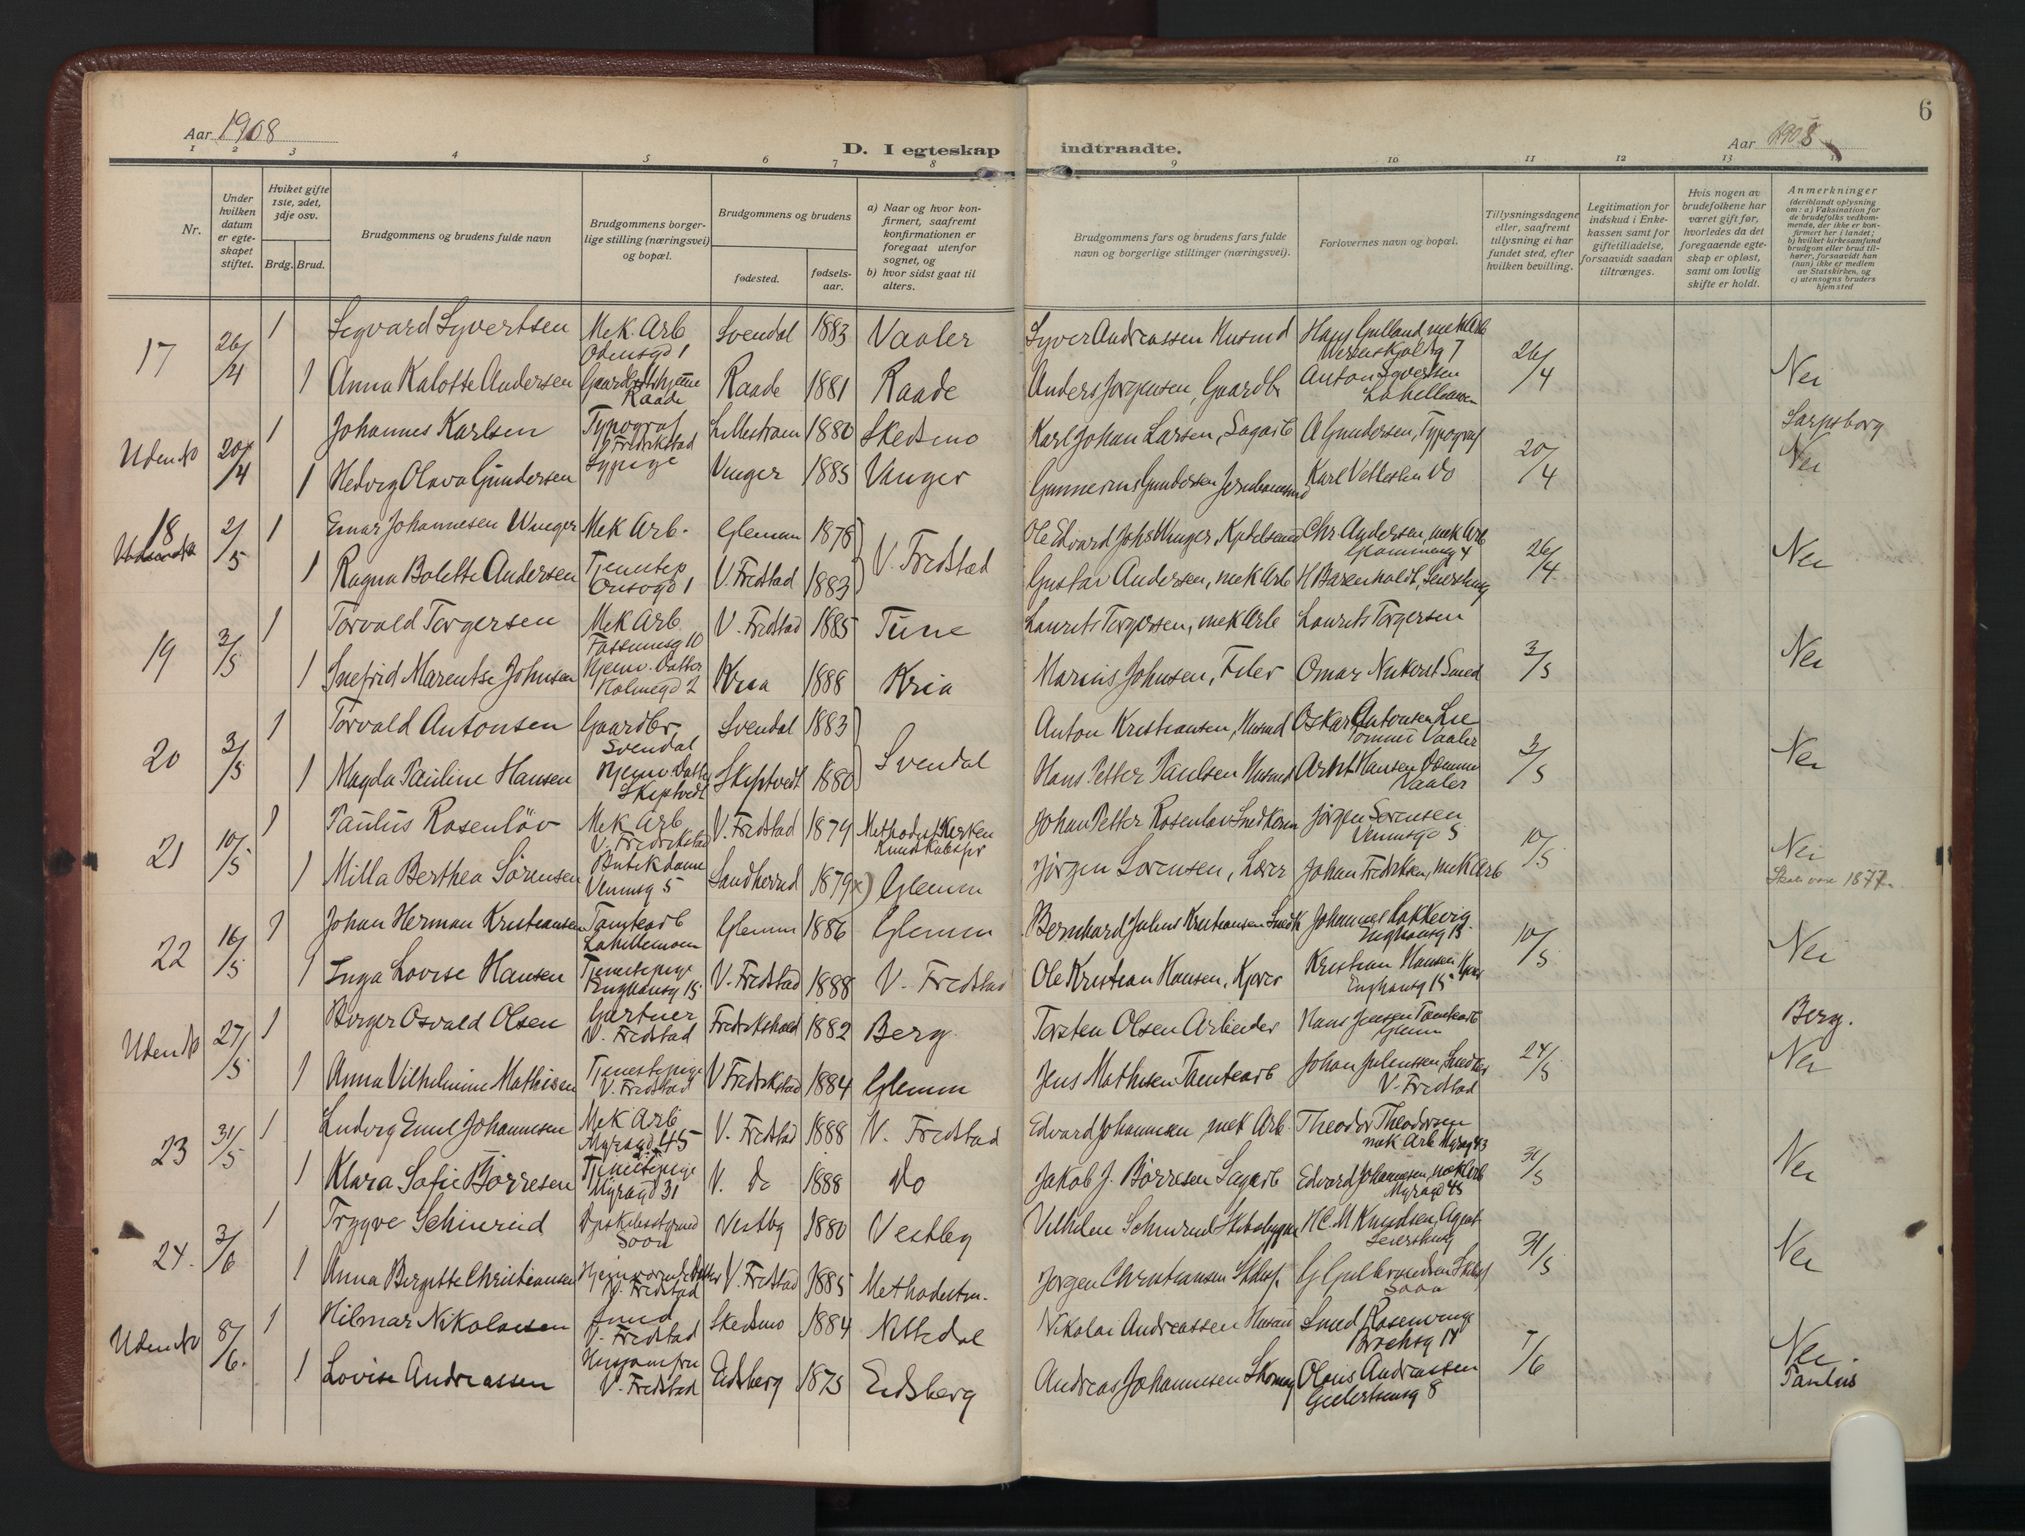 6
Aar 1908
D. I egteskap indtraadte.
Aar 1908
1 2 3 4 5 6 7 8 9 10 11 12 13
Nr.
Under hvilken datum er egte-skapet stiftet.
Hvilket gifte 1ste, 2det, 3dje osv.
Brdg. Brud.
Brudgommens og brudens fulde navn
Brudgommens borger-lige stilling (næringsvei) og bopæl.
Brudgommens og brudens
fødested. fødsels-aar.
a) Naar og hvor kon-firmert, saafremt konfirmationen er foregaat utenfor sognet, og
b) hvor sidst gaat til alters.
Brudgommens fars og brudens fars fulde navn og borgerlige stillinger (næringsvei).
Forlovernes navn og bopæl.
Tillysningsdagene eller, saafremt tillysning ei har fundet sted, efter hvilken bevilling.
Legitimation for indskud i Enke-kassen samt for giftetilladelse, forsaavidt saadan tiltrænges.
Hvis nogen av brudefolkene har været gift før, hvorledes da det foregaaende egte-skap er opløst, samt om lovlig skifte er holdt.
Anmerkninger (deriblandt oplysning om: a) Vaksination for de brudefolks vedkom-mende, der ikke er kon-firmert her i landet; b) hvilket kirkesamfund brudgom eller brud til-hører, forsaavidt han (hun) ikke er medlem av Statskirken, og c) utensogns bruders hjemsted
17 26/4 1 Sigvard Syvertsen Mek. Arb Svendal 1883 Vaaler Syver Andreassen Husmd 26/4 Nei
1 Anna Kalotte Andersen Raade Raade 1881 Raade Anders Jørgensen, Gaardbr Anton Syvertsen
Uden No 20/4 1 Johannes Karlsen Typograf Fredrikstad Lillestrøm 1880 Skedsmo Karl Johan Larsen, Sagarb A Gundersen, Typograf 20/4 Sarpsborg Nei
1 Hedvig Olava Gundersen Sypige Vinger 1885 Vinger Gunnerius Gundersen Karl Vettesten Do
18 2/5 1 Einar Johannesen Unger Mek Arb. Glemm 1878 V. Fredstad Ole Edvard Johs Unger Chr Andersen, mek Arb 26/4 Nei
1 Ragna Bolette Andersen Tjenestep V. Fredstad 1883 Gustav Andersen, mek Arb
19 3/5 1 Torvald Torgersen Mek Arb V. Fredstad 1885 Tune Laurits Torgersen, mek Arb Laurits Torgersen 3/5 Nei
1 Snefrid Marentse Johnsen Hjemv. Datter Kria 1888 Kria Marius Johnsen, Filer
20 3/5 1 Torvald Antonsen Gaardbr Svendal Svendal 1883 Svendal Anton Kristiansen, Husmd Oskar Antonsen Lie Vaaler 3/5 Nei
1 Magda Pauline Hansen Hjemv Datter Skiptvedt Skiptvedt 1880 Hans Petter Paulsen Husmd Vaaler
21 10/5 1 Paulus Rosenløv Mek Arb V. Fredrikstad V. Fredstad 1879 Methodist Kirken Johan Petter Rosenløv Jørgen Sørensen Venusgd 5 10/5 Nei
1 Milla Berthea Sørensen Butikdame Venusg 5 Sandherred 1879 x) Glemm Jørgen Sørensen, Lærer Johan Fredriksen, mek Arb Skal være 1877.
22 16/5 1 Johan Herman Kristiansen Tomtearb Glemm 1886 Glemm Bernhard Julius Kristiansen Snedk Johannes Løkkevig Enghausg 15 10/5 Nei
1 Inga Lovise Hansen Tjenestepige Enghausg 15 V. Fredstad 1888 V. Fredstad Ole Kristian Hansen, Kjører Kristian Hansen, Enghausg 15
Uden No 27/5 1 Birger Osvald Olsen Gartner V. Fredstad Fredrikshald 1882 Berg Torsten Olsen Arbeider Hans Jensen Tomtearb Glemm 24/5 Berg. Nei
1 Anna Vilhelmine Mathisen Tjenestepige V. Fredstad V Fredrikstad 1884 Glemm Jens Mathisen Tomtearb Johan Juliussen, V. Fredstad
23 31/5 1 Ludvig Emil Johannesen Mek Arb Myragd 45 V. Fredstad 1888 V. Fredstad Edvard Johannesen, mek Arb. Theodor Theodorsen mek Arb Myrag 43 31/5 Nei
1 Klara Sofie Børresen Tjenestepige Myragd 31 V. do 1888 Do Jakob J. Børresen Sagarb Edvard Johannesen, mek Arb Myragd 45
24. 3/6 1 Trygve Schinrud Soon Vestby 1880 Vestby Vilhelm Schinrud Skibsbygger H.C. M Knudsen, Agent 31/5 Nei
1 Anna Birgitte Christiansen V. Fredstad V. Fredstad 1885 Methodistm. Jørgen Christiansen Soon
Uden No 8/6. 1 Hilmar Nikolaisen Smed V. Fredstad Skedsmo 1884 Nittedal Nikolai Andreassen Smed Rosenvinge Brochsg 14 7/6 Nei.
1 Lovise Andreassen V. Fredstad Eidsberg 1875 Eidsberg Andreas Johannesen Skomag Olaus Andreassen 8 Paulus